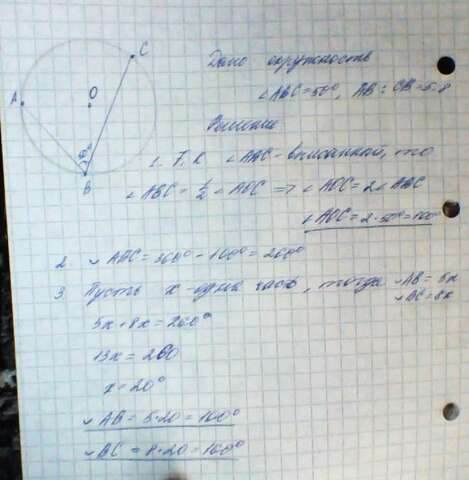 C
A
O
50°
B
Дано окружность
∠ABC=50°, AB : CB = 5:8
Решение
1. Т.к. ∠ABC - вписанный, то
∠ABC = 1/2 ∠AOC => ∠AOC = 2∠ABC
∠AOC = 2·50°=100°
2. ◡ABC = 360° - 100° = 260°
3. Пусть x - одна часть, тогда ◡AB = 5x
◡BC = 8x
5x + 8x = 260°
13x = 260
x = 20°
◡AB = 5·20 = 100°
◡BC = 8·20 = 160°